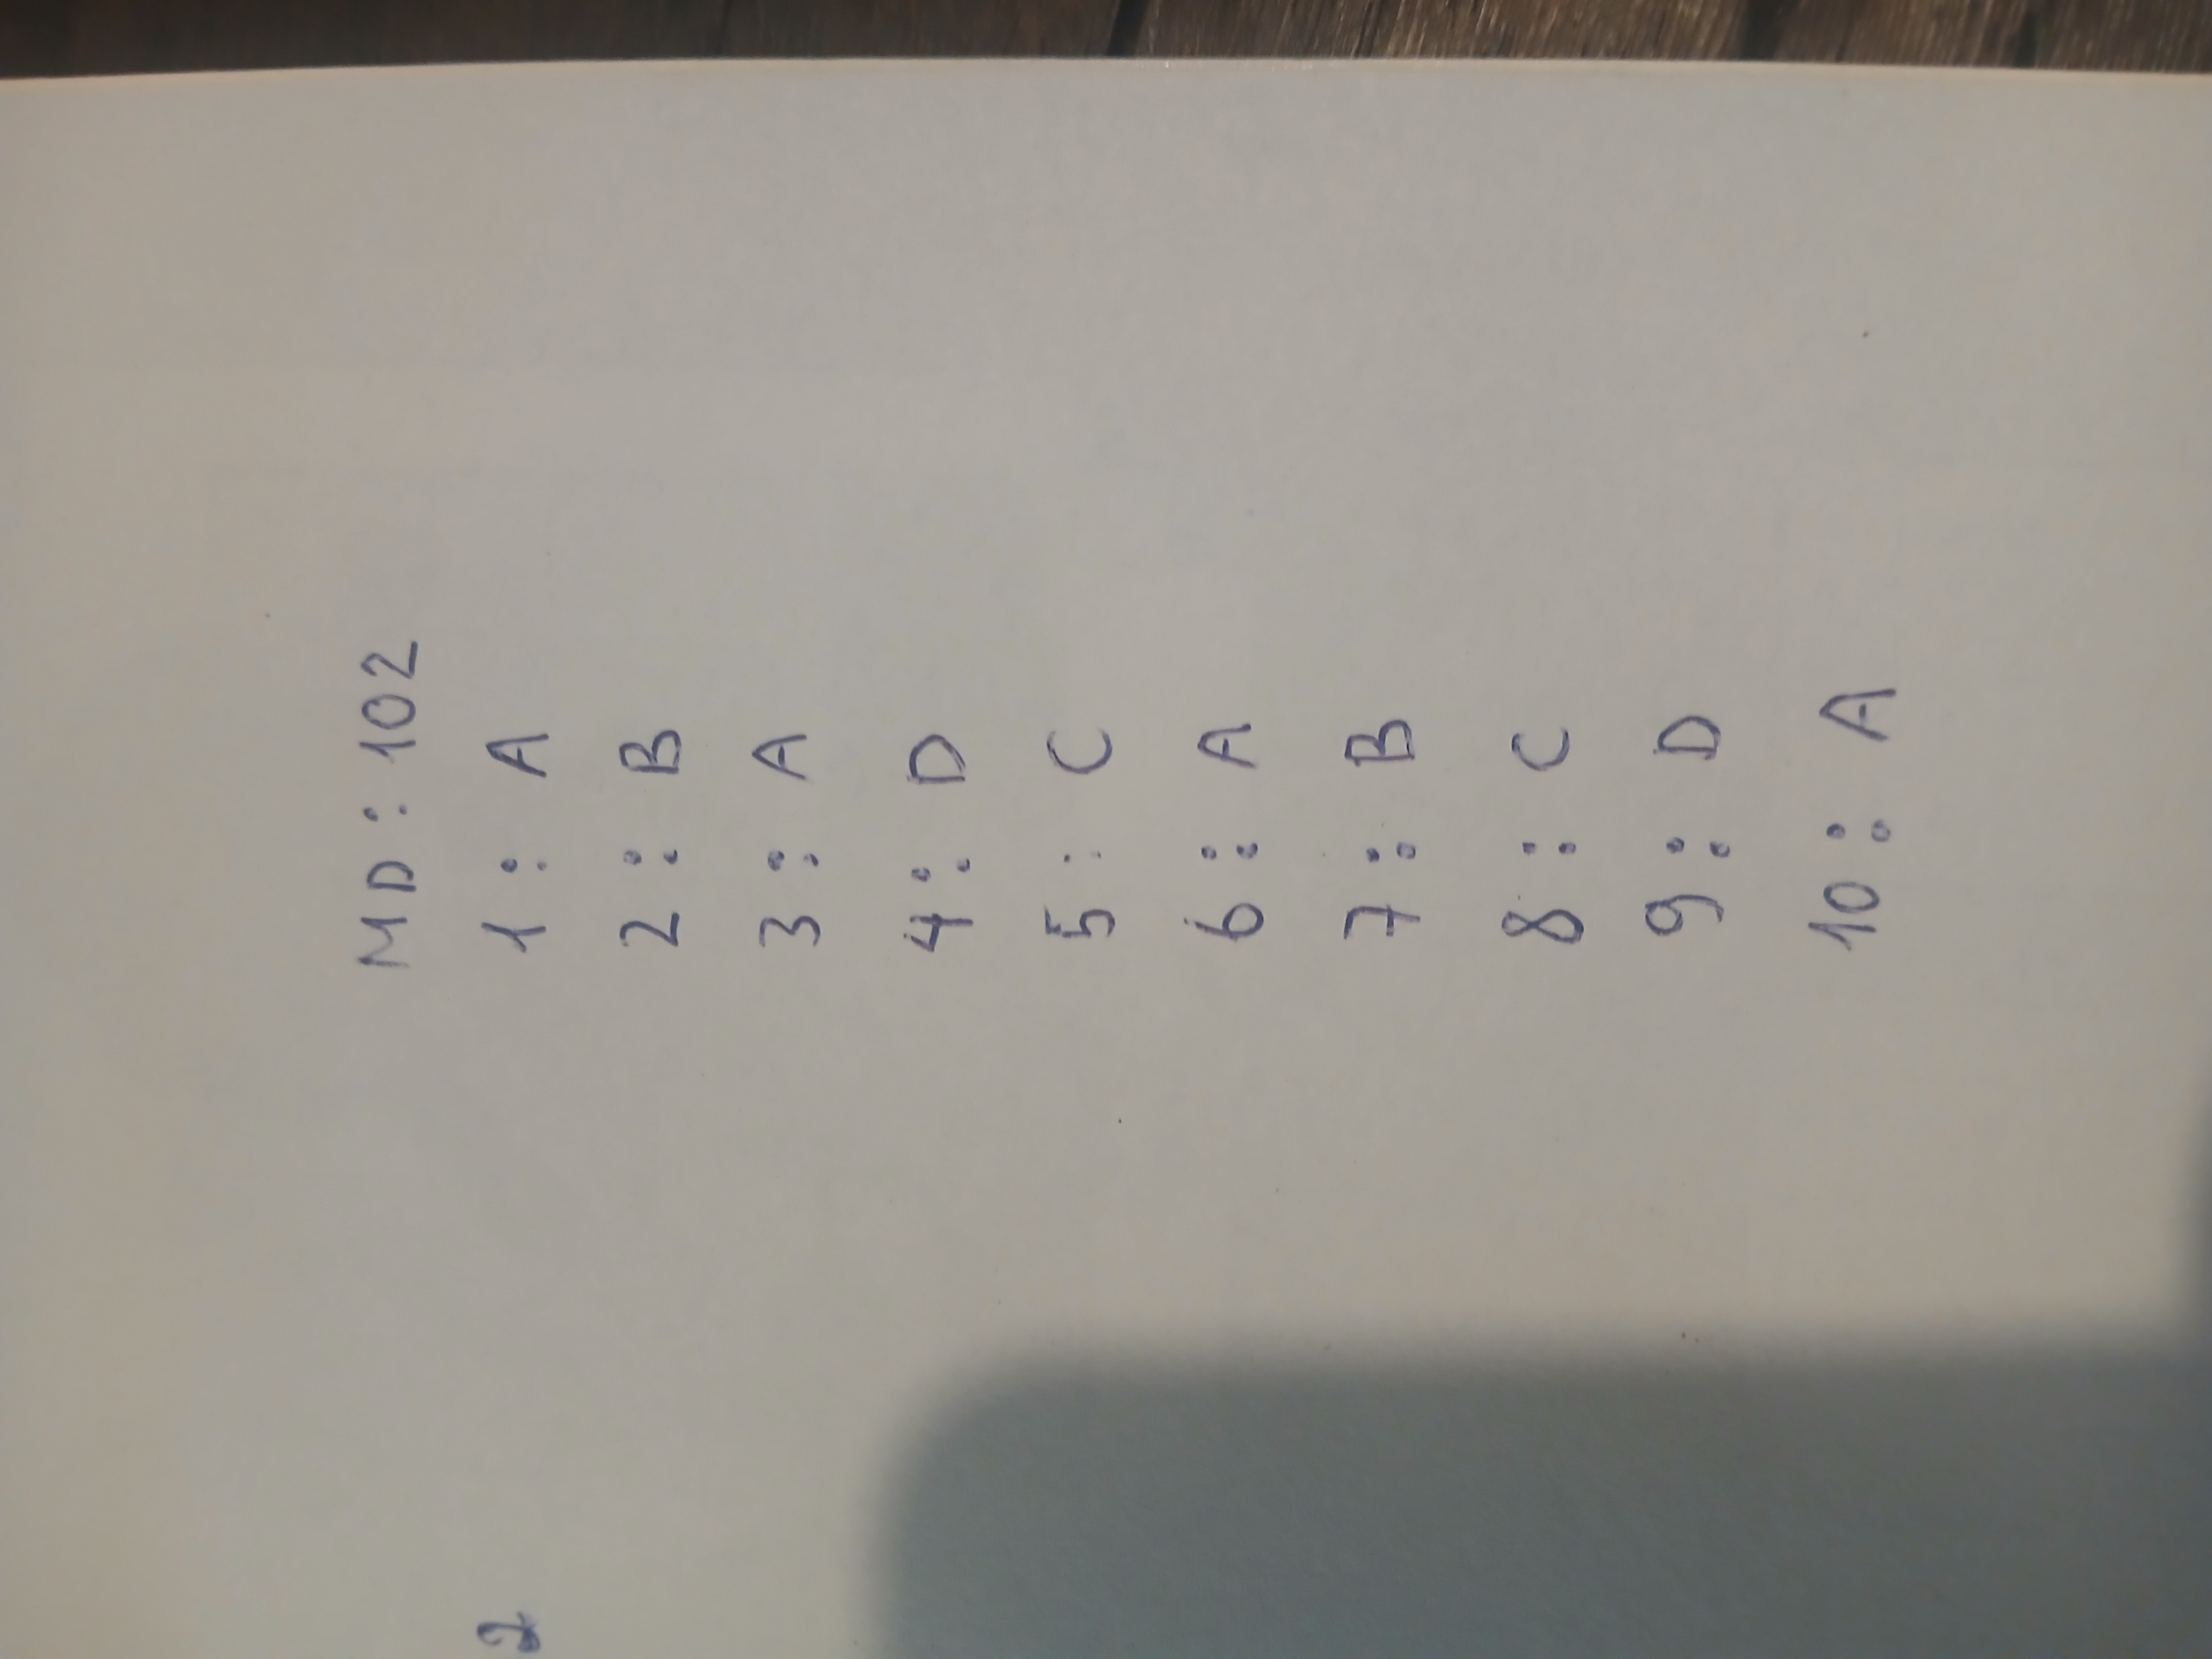 MD : 102
2
1 : A
2 : B
3 : A
4 : D
5 : C
6 : A
7 : B
8 : C
9 : D
10 : A